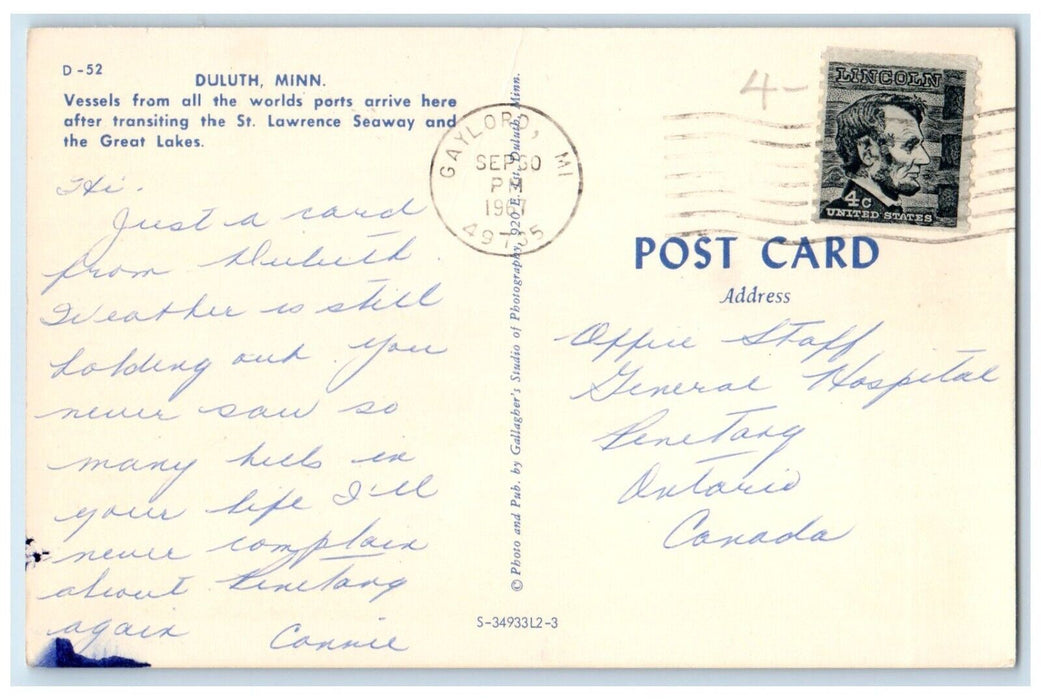 D-52
DULUTH, MINN.
Vessels from all the worlds ports arrive here
after transiting the St. Lawrence Seaway and
the Great Lakes.
Hi.
Just a card
from Duluth.
Weather is still
holding out. You
never saw so
many hills in
your life I'll
never complain
about Penetang
again Connie
© Photo and Pub. by Gallagher's Studio of Photography, 920 E. 1st, Duluth, Minn.
S-34933L2-3
GAYLORD, MI
SEP 30
PM
1967
49735
4-
LINCOLN
4c
UNITED STATES
POST CARD
Address
Office Staff
General Hospital
Penetang
Ontario
Canada